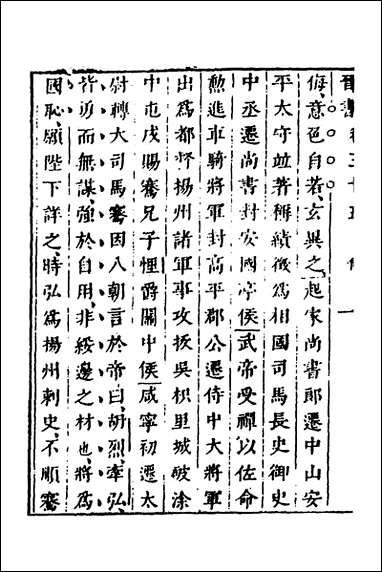 晉書卷三十五 傳 一
侮意色自若玄異之起家尚書郎遷中山安
平太守並著稱績徵為相國司馬長史御史
中丞遷尚書封安國亭侯武帝受禪以佐命
勲進車騎將軍封高平郡公遷侍中大將軍
出為都督揚州諸軍事攻拔吳枳里城破涂
中屯戍賜騫兄子悝爵關中侯咸寧初遷太
尉轉大司馬騫因入朝言於帝曰胡烈牽弘
皆勇而無謀強於自用非綏邊之材也將為
國恥願陛下詳之時弘為揚州刺史不順騫